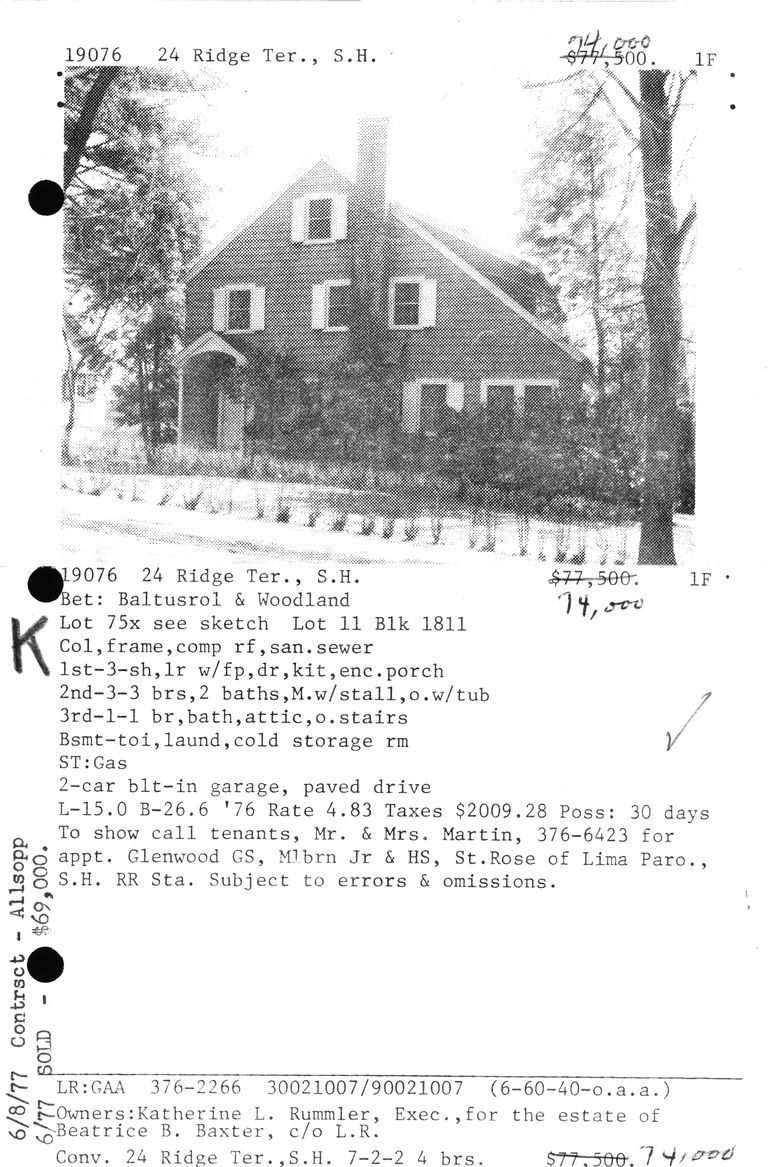 74,000
19076 24 Ridge Ter., S.H. $77,500. 1F
19076 24 Ridge Ter., S.H. $77,500. 1F
74,000
Bet: Baltusrol & Woodland
Lot 75x see sketch Lot 11 Blk 1811
K
Col,frame,comp rf,san.sewer
1st-3-sh,lr w/fp,dr,kit,enc.porch
2nd-3-3 brs,2 baths,M.w/stall,o.w/tub
3rd-1-1 br,bath,attic,o.stairs
Bsmt-toi,laund,cold storage rm
ST:Gas
2-car blt-in garage, paved drive
L-15.0 B-26.6 '76 Rate 4.83 Taxes $2009.28 Poss: 30 days
To show call tenants, Mr. & Mrs. Martin, 376-6423 for
appt. Glenwood GS, Mlbrn Jr & HS, St.Rose of Lima Paro.,
S.H. RR Sta. Subject to errors & omissions.
6/8/77 Contrsct - Allsopp
6/77 SOLD - $69,000.
LR:GAA 376-2266 30021007/90021007 (6-60-40-o.a.a.)
Owners:Katherine L. Rummler, Exec.,for the estate of
Beatrice B. Baxter, c/o L.R.
Conv. 24 Ridge Ter.,S.H. 7-2-2 4 brs. $77,500. 74,000